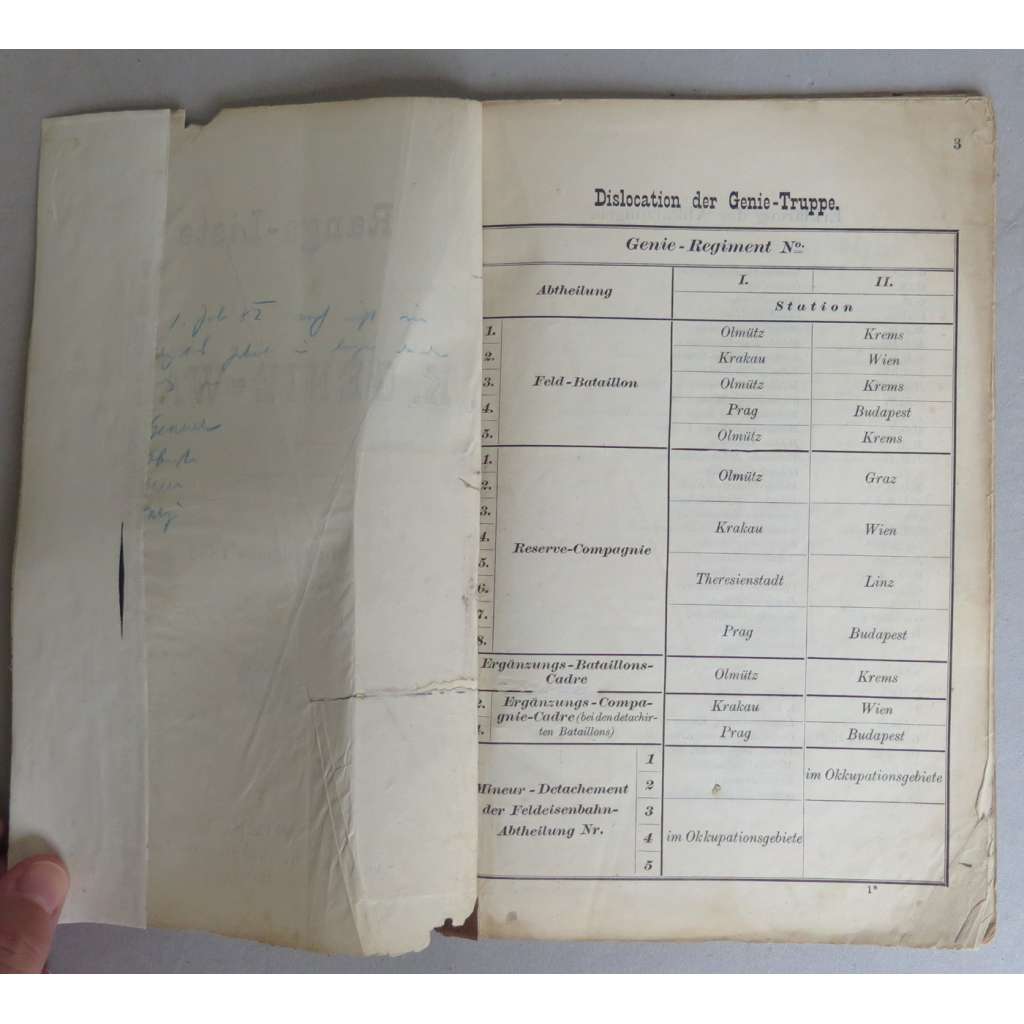 Rangs-Liste
3
Dislocation der Genie-Truppe.
Genie-Regiment No.
Abtheilung I. II.
Station
1. Feld-Bataillon Olmütz Krems
2. Krakau Wien
3. Olmütz Krems
4. Prag Budapest
5. Olmütz Krems
1. Reserve-Compagnie Olmütz Graz
2.
3. Krakau Wien
4.
5. Theresienstadt Linz
6.
7. Prag Budapest
8.
Ergänzungs-Bataillons-
Cadre Olmütz Krems
2. Ergänzungs-Compa- Krakau Wien
gnie-Cadre (bei den detachir-
ten Bataillons) Prag Budapest
Mineur-Detachement
der Feldeisenbahn-
Abtheilung Nr.
1
2 im Okkupationsgebiete
3
4 im Okkupationsgebiete
5
1*